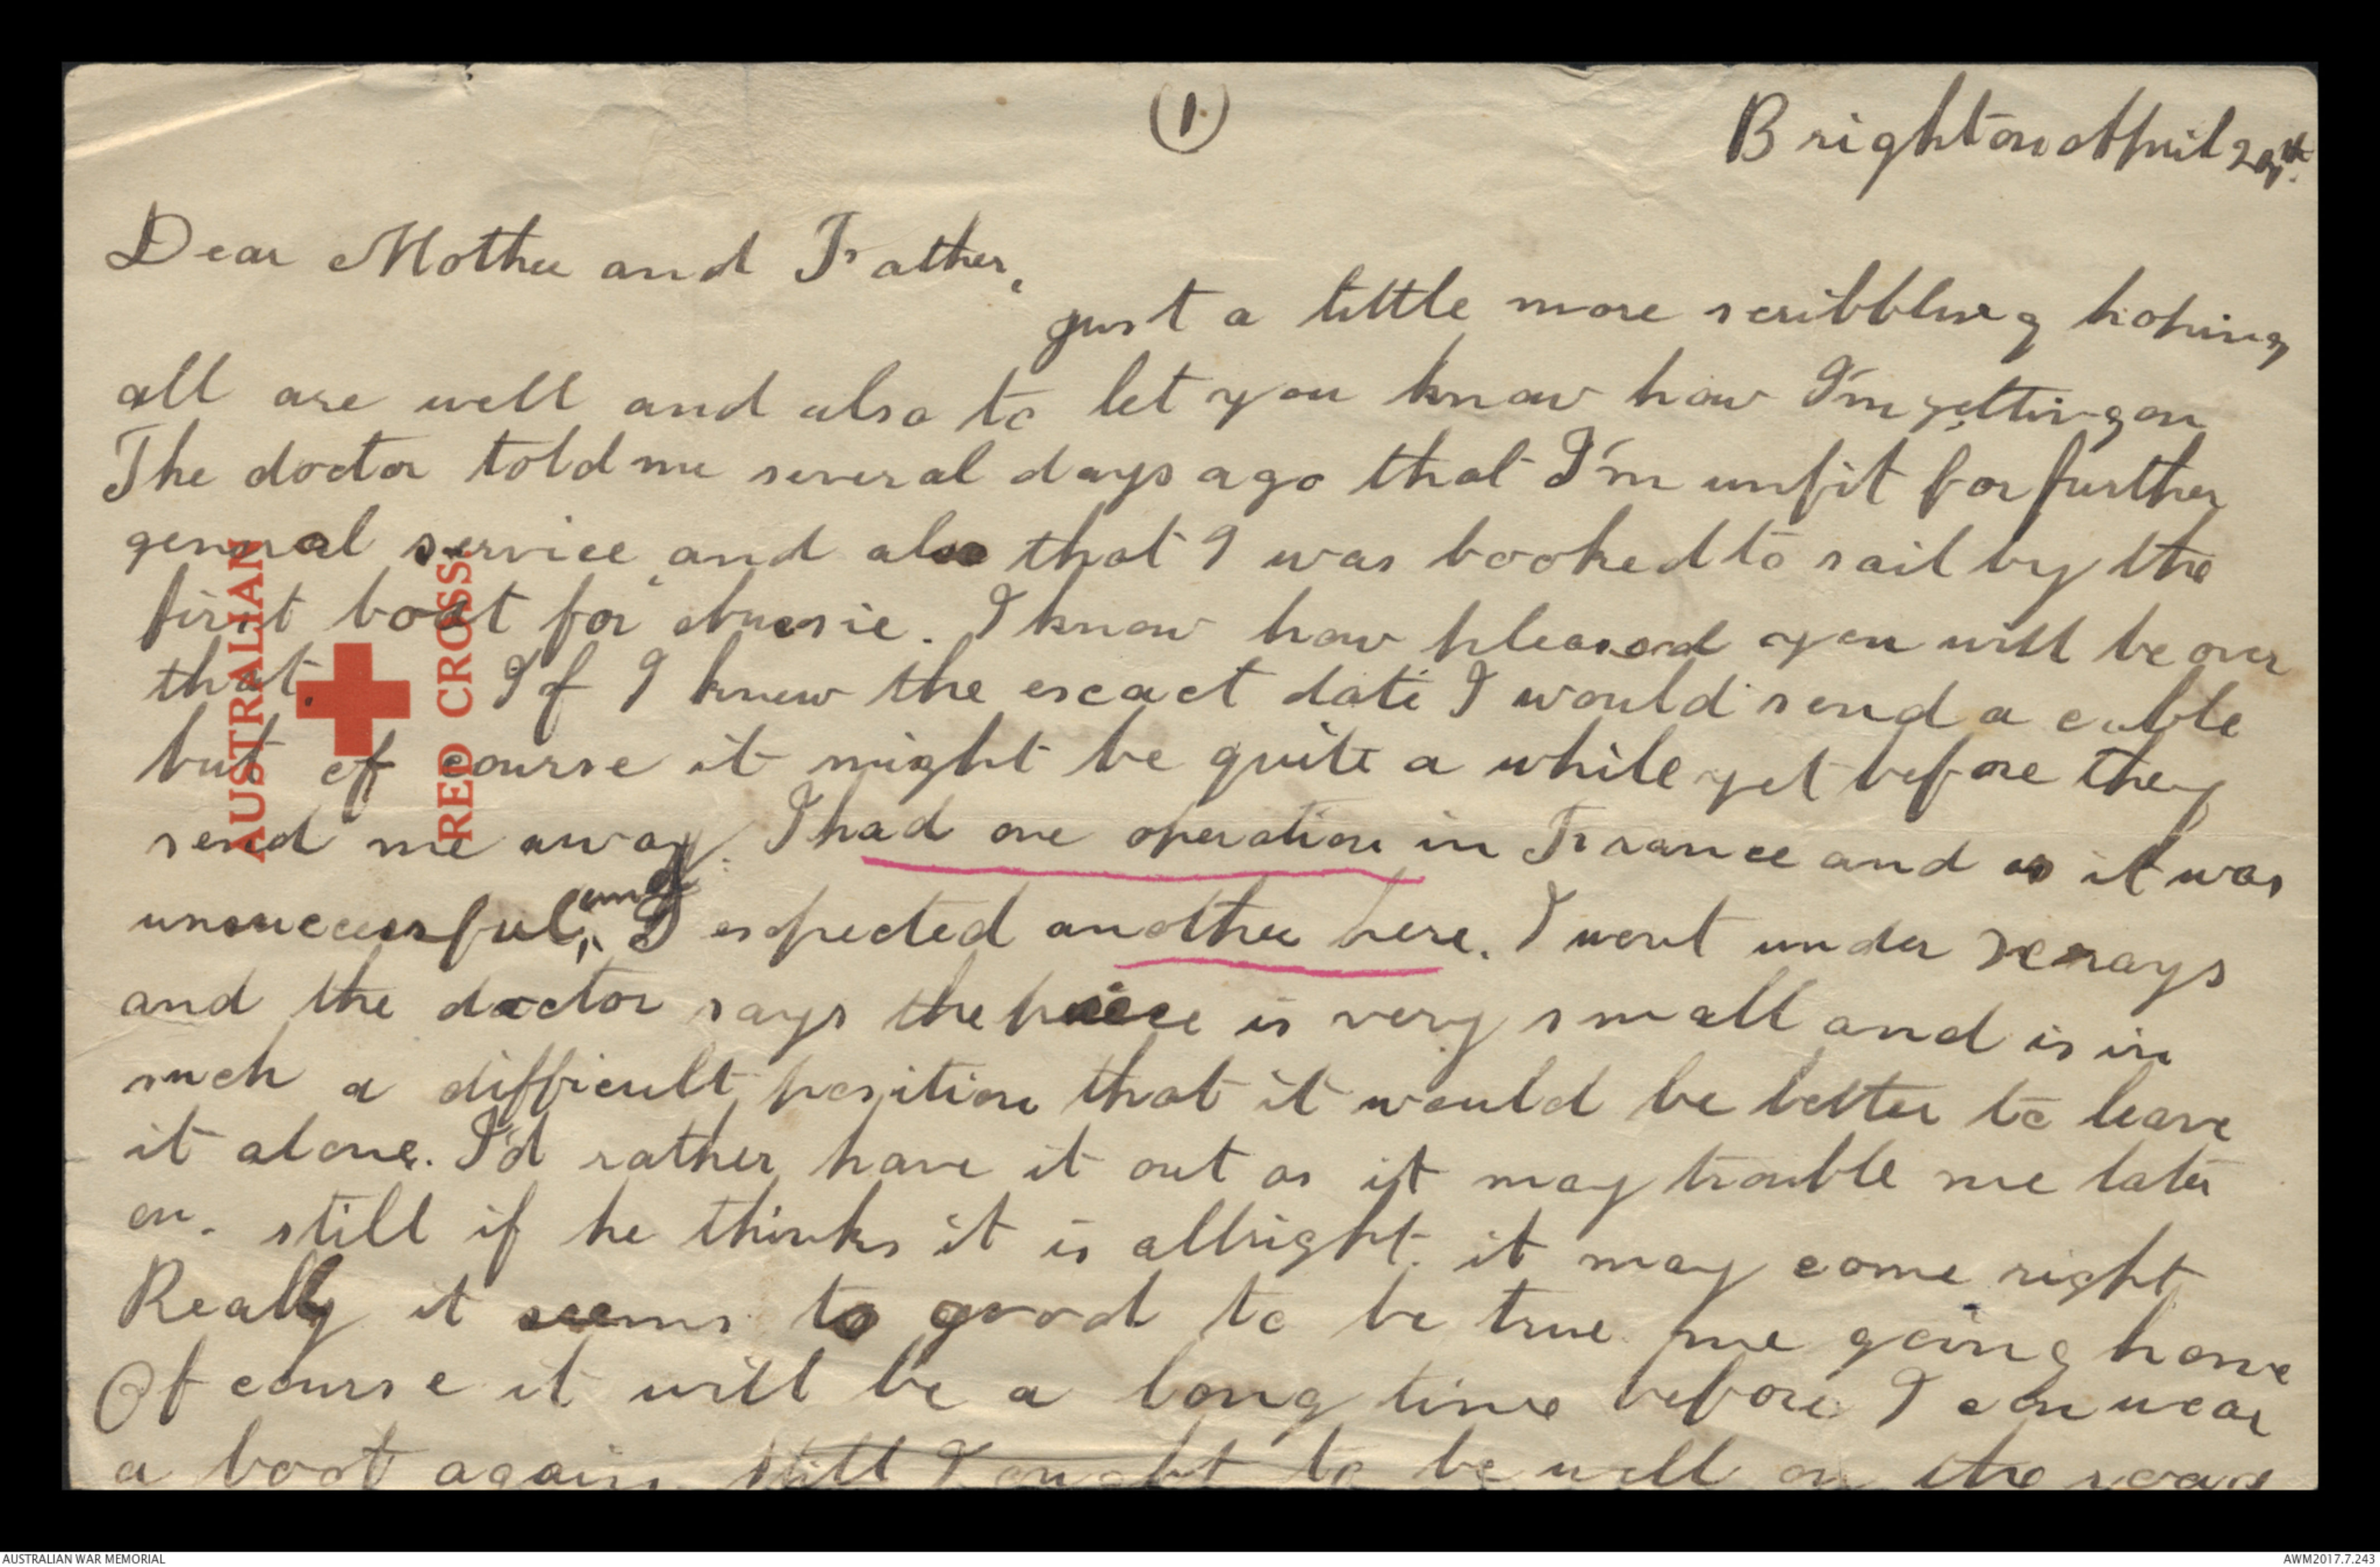 (1)
Brighton April 29th.
Dear Mother and Father,
just a little more scribbling hoping
all are well and also to let you know how I'm getting on
The doctor told me several days ago that I'm unfit for further
general service and also that I was booked to sail by the
first boat for Aussie. I know how pleased you will be over
that. If I knew the excact date I would send a cable
but of course it might be quite a while yet before they
send me away. I had one operation in France and as it was
unsuccessful, and I expected another here. I went under xrays
and the doctor says the piece is very small and is in
such a difficult position that it would be better to leave
it alone. I'd rather have it out as it may trouble me later
on. still if he thinks it is allright. it may come right
Really it seems to good to be true me going home
Of course it will be a long time before I can wear
a boot again. Still I ought to be well on the road
AUSTRALIAN
RED CROSS
AUSTRALIAN WAR MEMORIAL
AWM2017.7.243